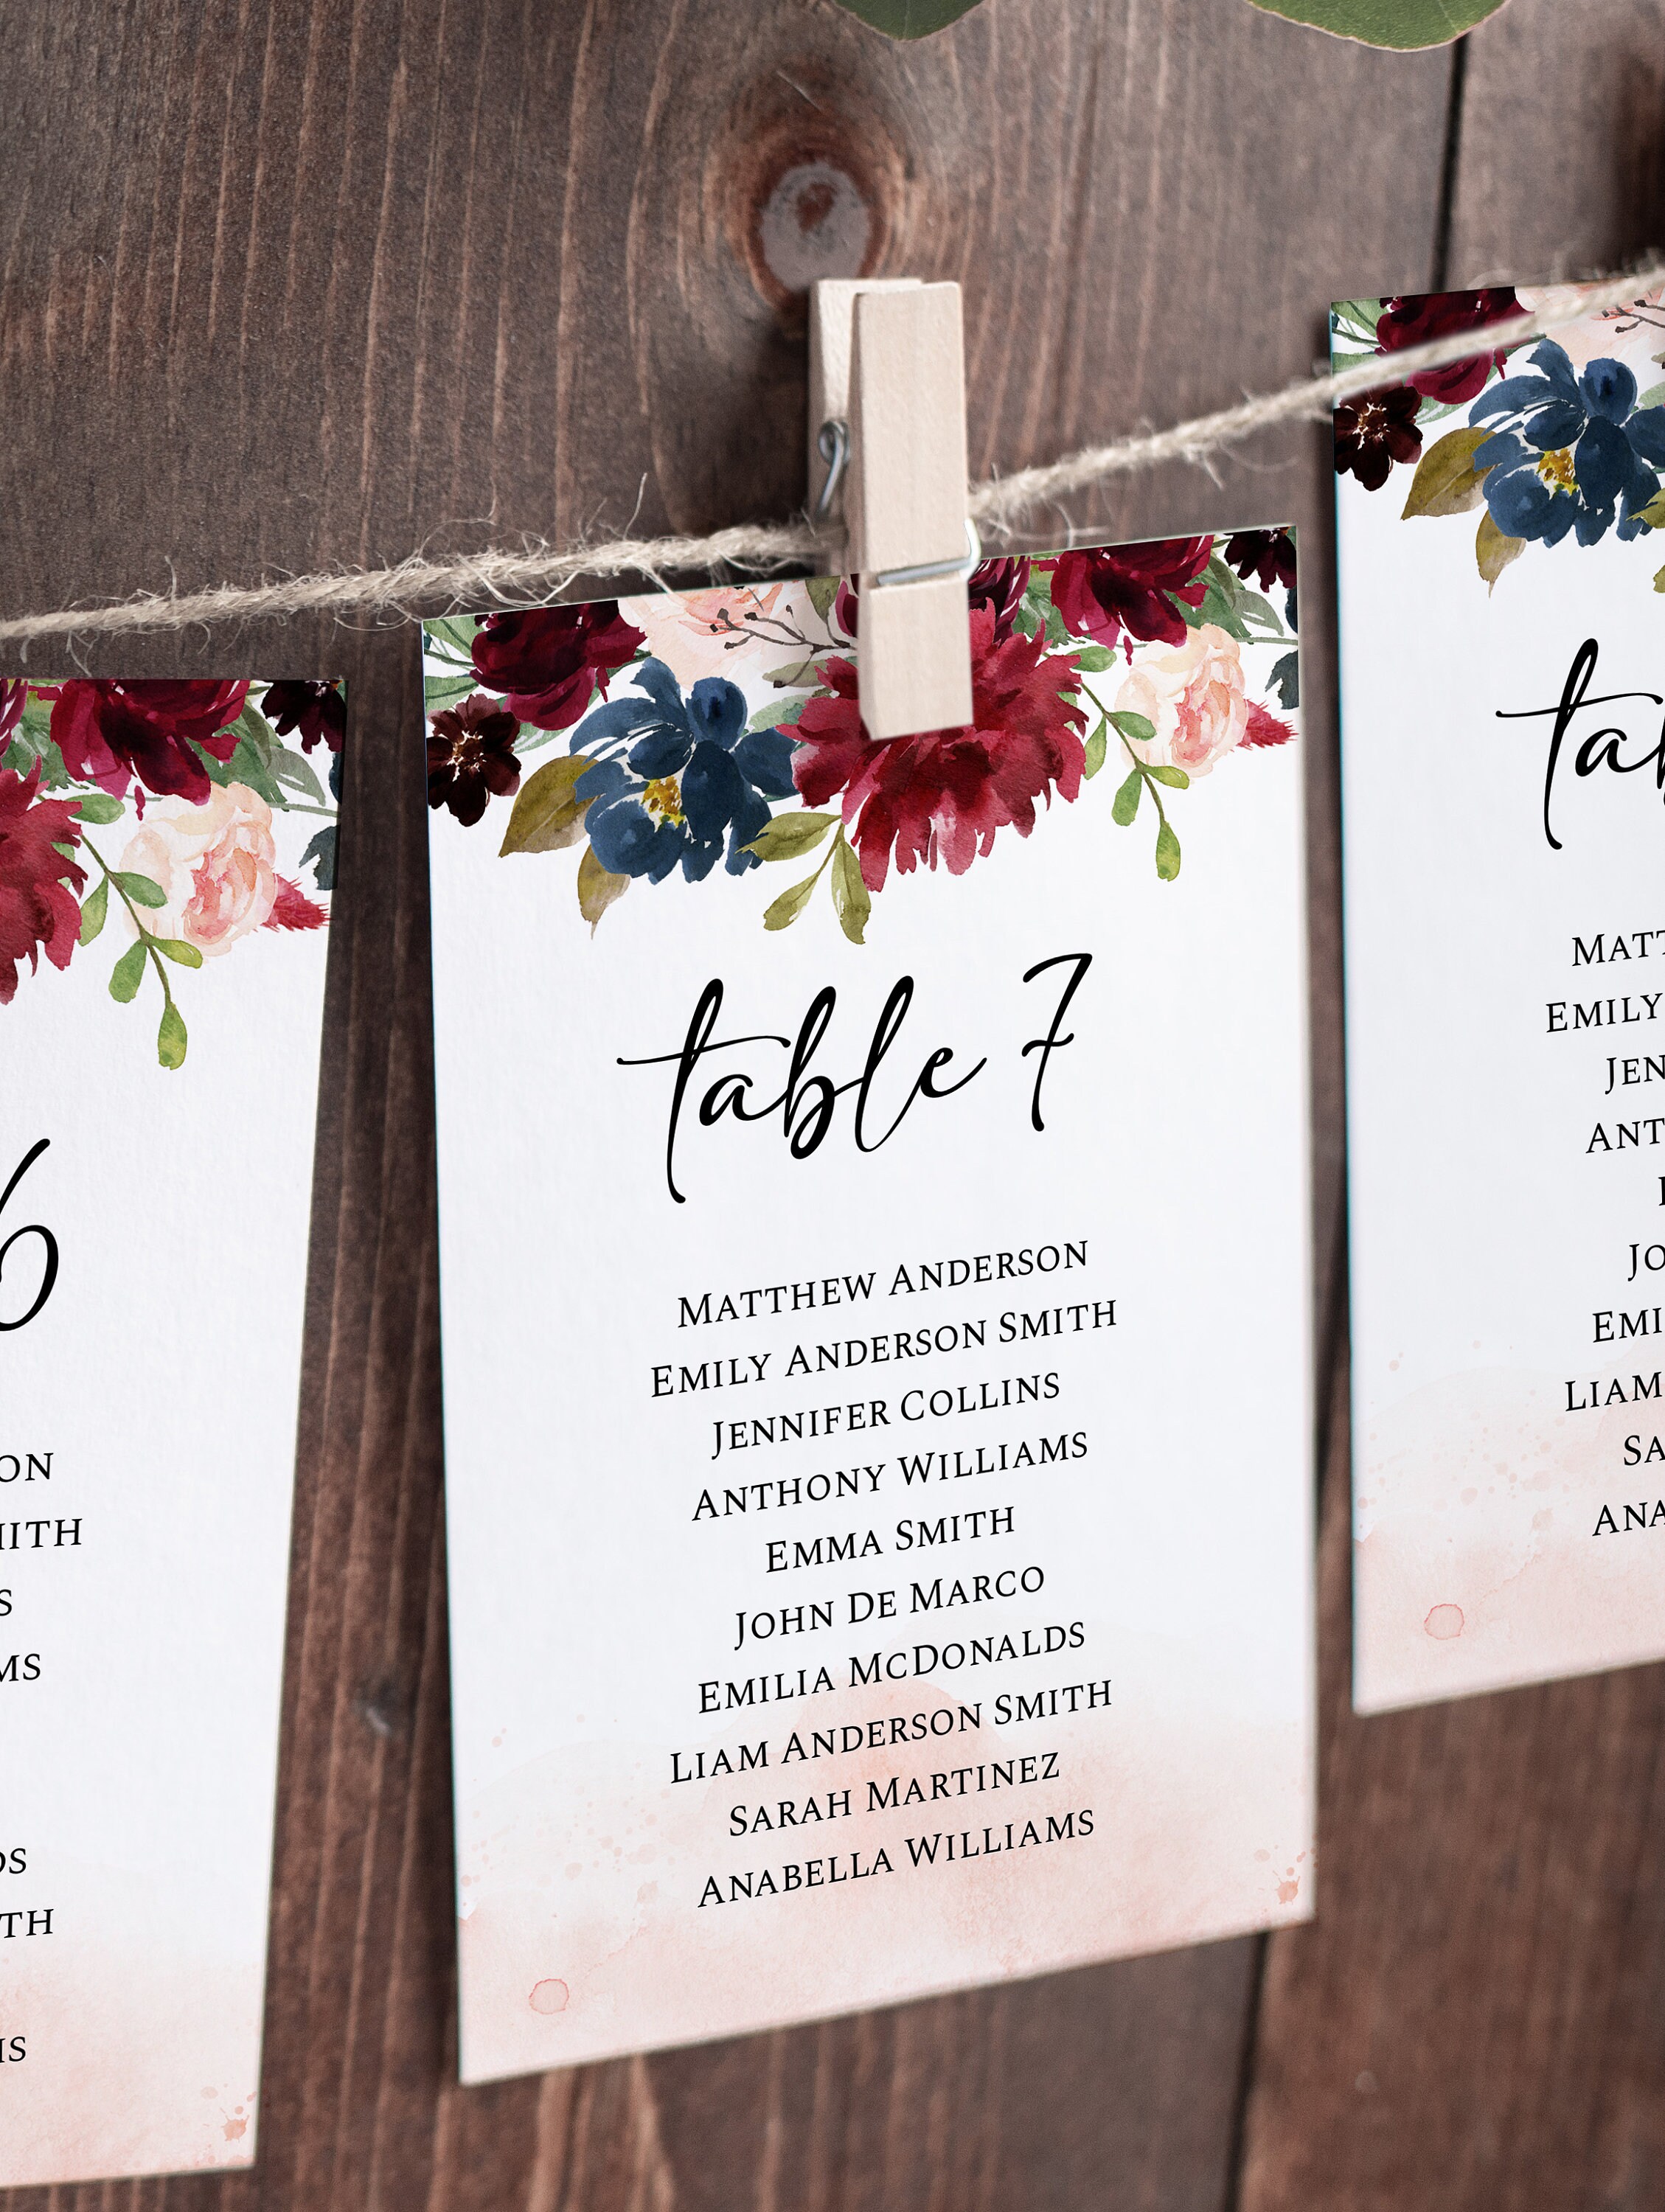 6
ON
MITH
S
MS
DS
TH
IS
table 7
Matthew Anderson
Emily Anderson Smith
Jennifer Collins
Anthony Williams
Emma Smith
John De Marco
Emilia McDonalds
Liam Anderson Smith
Sarah Martinez
Anabella Williams
tab
Matt
Emily
Jen
Ant
Jo
Emi
Liam
Sa
Ana